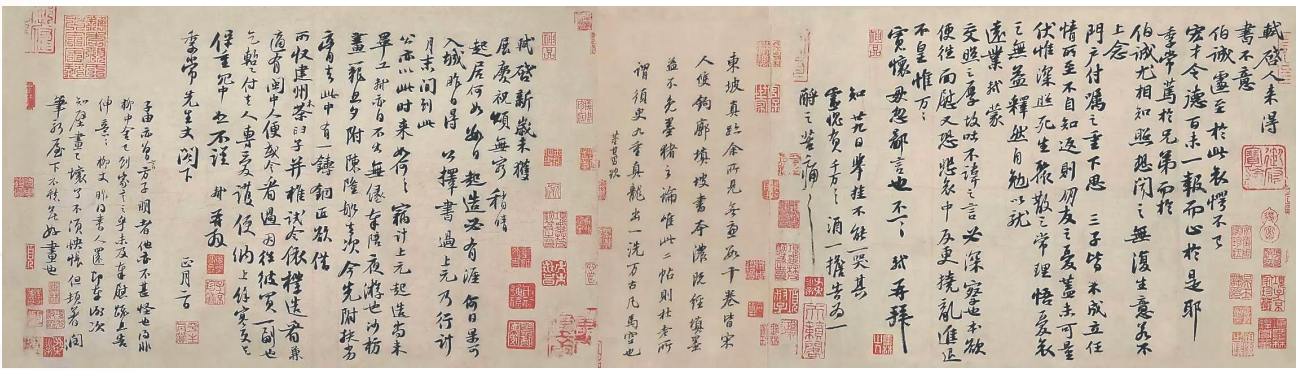 軾啓人来得
書不意
伯誠遽至於此哀愕不已
宏才令德百未一報而止於是耶
季常篤於兄弟而於
伯誠尤相知照想聞之無復生意若不
上念
門戶付囑之重下思三子皆未成立任
情所至不自知返則朋友之憂蓋未可量
伏惟深照死生聚散之常理悟憂哀
之無益釋然自勉以就
遠業軾蒙
交照之厚故吐不諱之言必深察也本欲
便往面慰又恐悲哀中反更撓亂進退
不皇惟萬萬
寬懷毋忽鄙言也不一一軾再拜
知廿九日舉挂不能一哭其
靈愧負千萬千萬酒一擔告為一
酹之苦痛苦痛
東坡真跡余所見無慮數十卷皆宋
人雙鉤廓填坡書本濃既經填墨
益不免墨豬之論唯此二帖則杜老所
謂須臾九重真龍出一洗萬古凡馬空也
董其昌跋
軾啓新歲未獲
展慶祝頌無窮稍晴
起居何如數日起造必有涯何日果可
入城昨日得公擇書過上元乃行計
月末間到此
公亦以此時来如何如何竊計上元起造尚未
畢工軾亦自不出無緣奉陪夜游也沙枋
畫籠旦夕附陳隆船去次今先附扶劣
膏去此中有一鑄銅匠欲借
所收建州木茶臼子并椎試令依樣造看兼
適有閩中人便或令看過因往彼買一副也
乞暫付去人專愛護便納上餘寒更乞
保重冗中恕不謹軾再拜
季常先生丈閣下正月二日
子由亦曾言方子明者他亦不甚怪也得非
柳中舍已到家言之乎未及奉慰疏且告
伸意伸意柳丈昨得書人還即奉謝次
知壁畫已壞了不須怏悵但頓著潤
筆新屋下不愁無好畫也